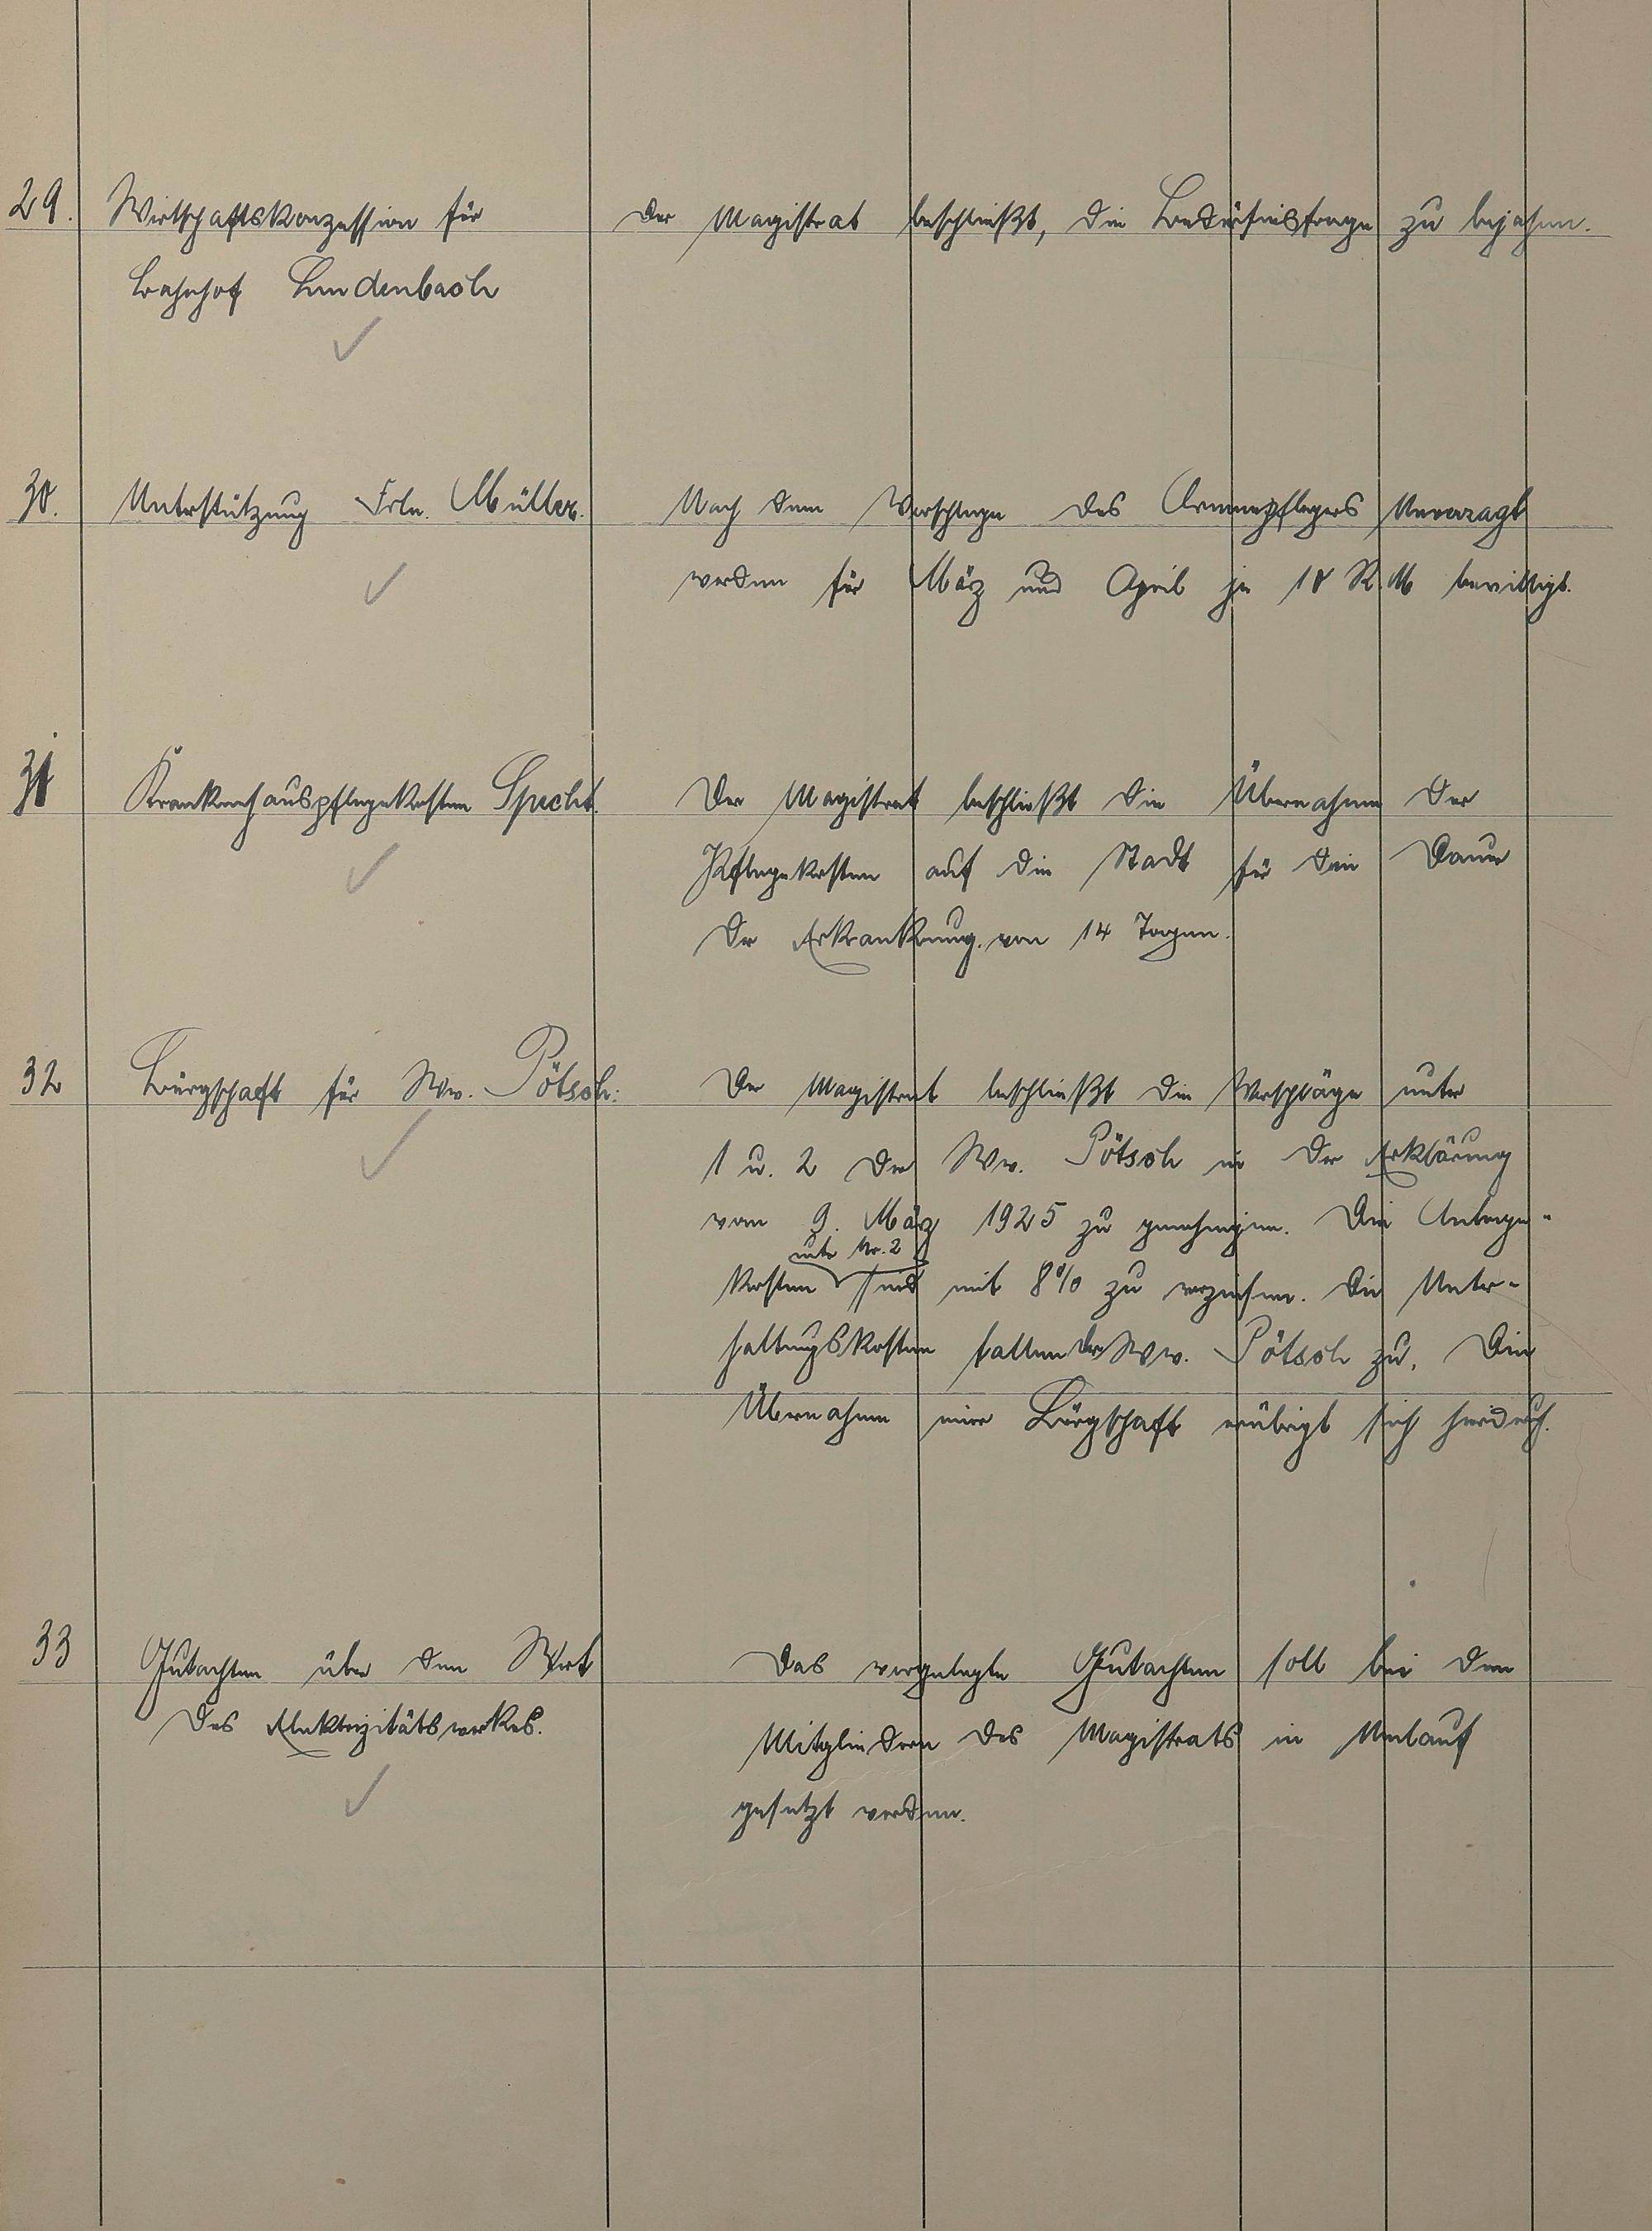 29. Wirtschaftskonzession für
Bahnhof Lindenbach
Der Magistrat beschließt, die Bedürfnisfrage zu bejahen.
30. Unterstützung Frln. Müller.
Nach dem Vorschlage des Armenpflegers
werden für März und April je 10 R.M bewilligt.
31 Krankenhauspflegekosten Specht.
Der Magistrat beschließt die Übernahme der
Pflegekosten auf die Stadt für die Dauer
der Erkrankung von 14 Tagen.
32 Bürgschaft für Ww. Pötsch:
Der Magistrat beschließt die Vorschläge unter
1 u. 2 der Ww. Pötsch in der Erklärung
vom 9. März 1925 zu genehmigen. Die Anlage-
unter Nr. 2
kosten sind mit 8% zu verzinsen. Die Unter-
haltungskosten fallen der Ww. Pötsch zu. Die
Übernahme einer Bürgschaft erübrigt sich hierdurch.
33 Gutachten über den Wert
des Elektrizitätswerkes.
Das vorgelegte Gutachten soll bei den
Mitgliedern des Magistrats in Umlauf
gesetzt werden.